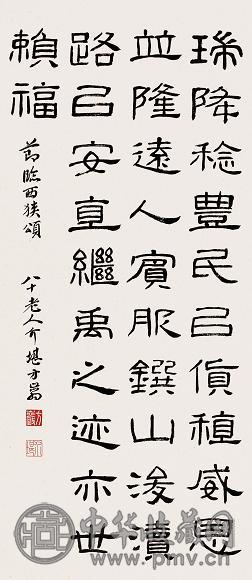 瑞降稔豊民㠯貨稙威恩
並隆遠人賓服鐉山浚瀆
路㠯安直繼禹之迹亦世
賴福
節臨西狹頌 八十老人介堪方翁
中华收藏网
www.pmv.cn